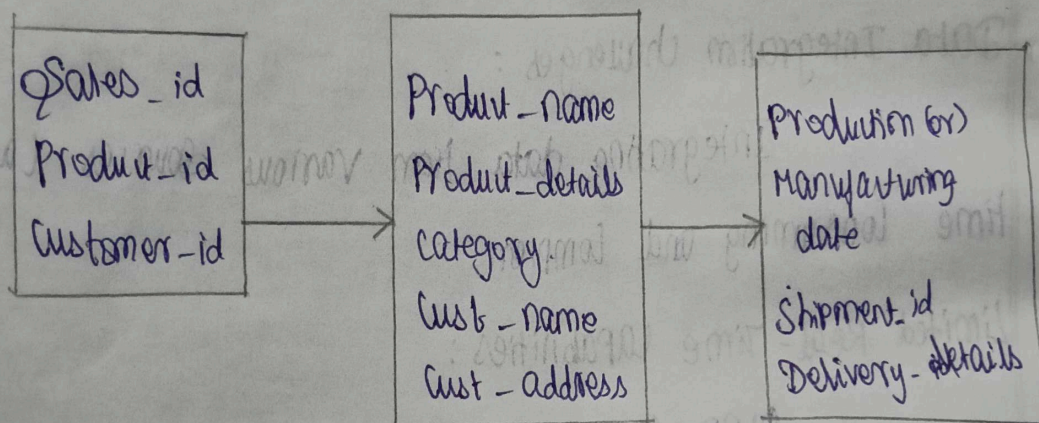 Sales_id
Product_id
Customer_id
Product_name
Product_details
category
Cust_name
Cust_address
Production (or)
Manufacturing
date
Shipment_id
Delivery_details